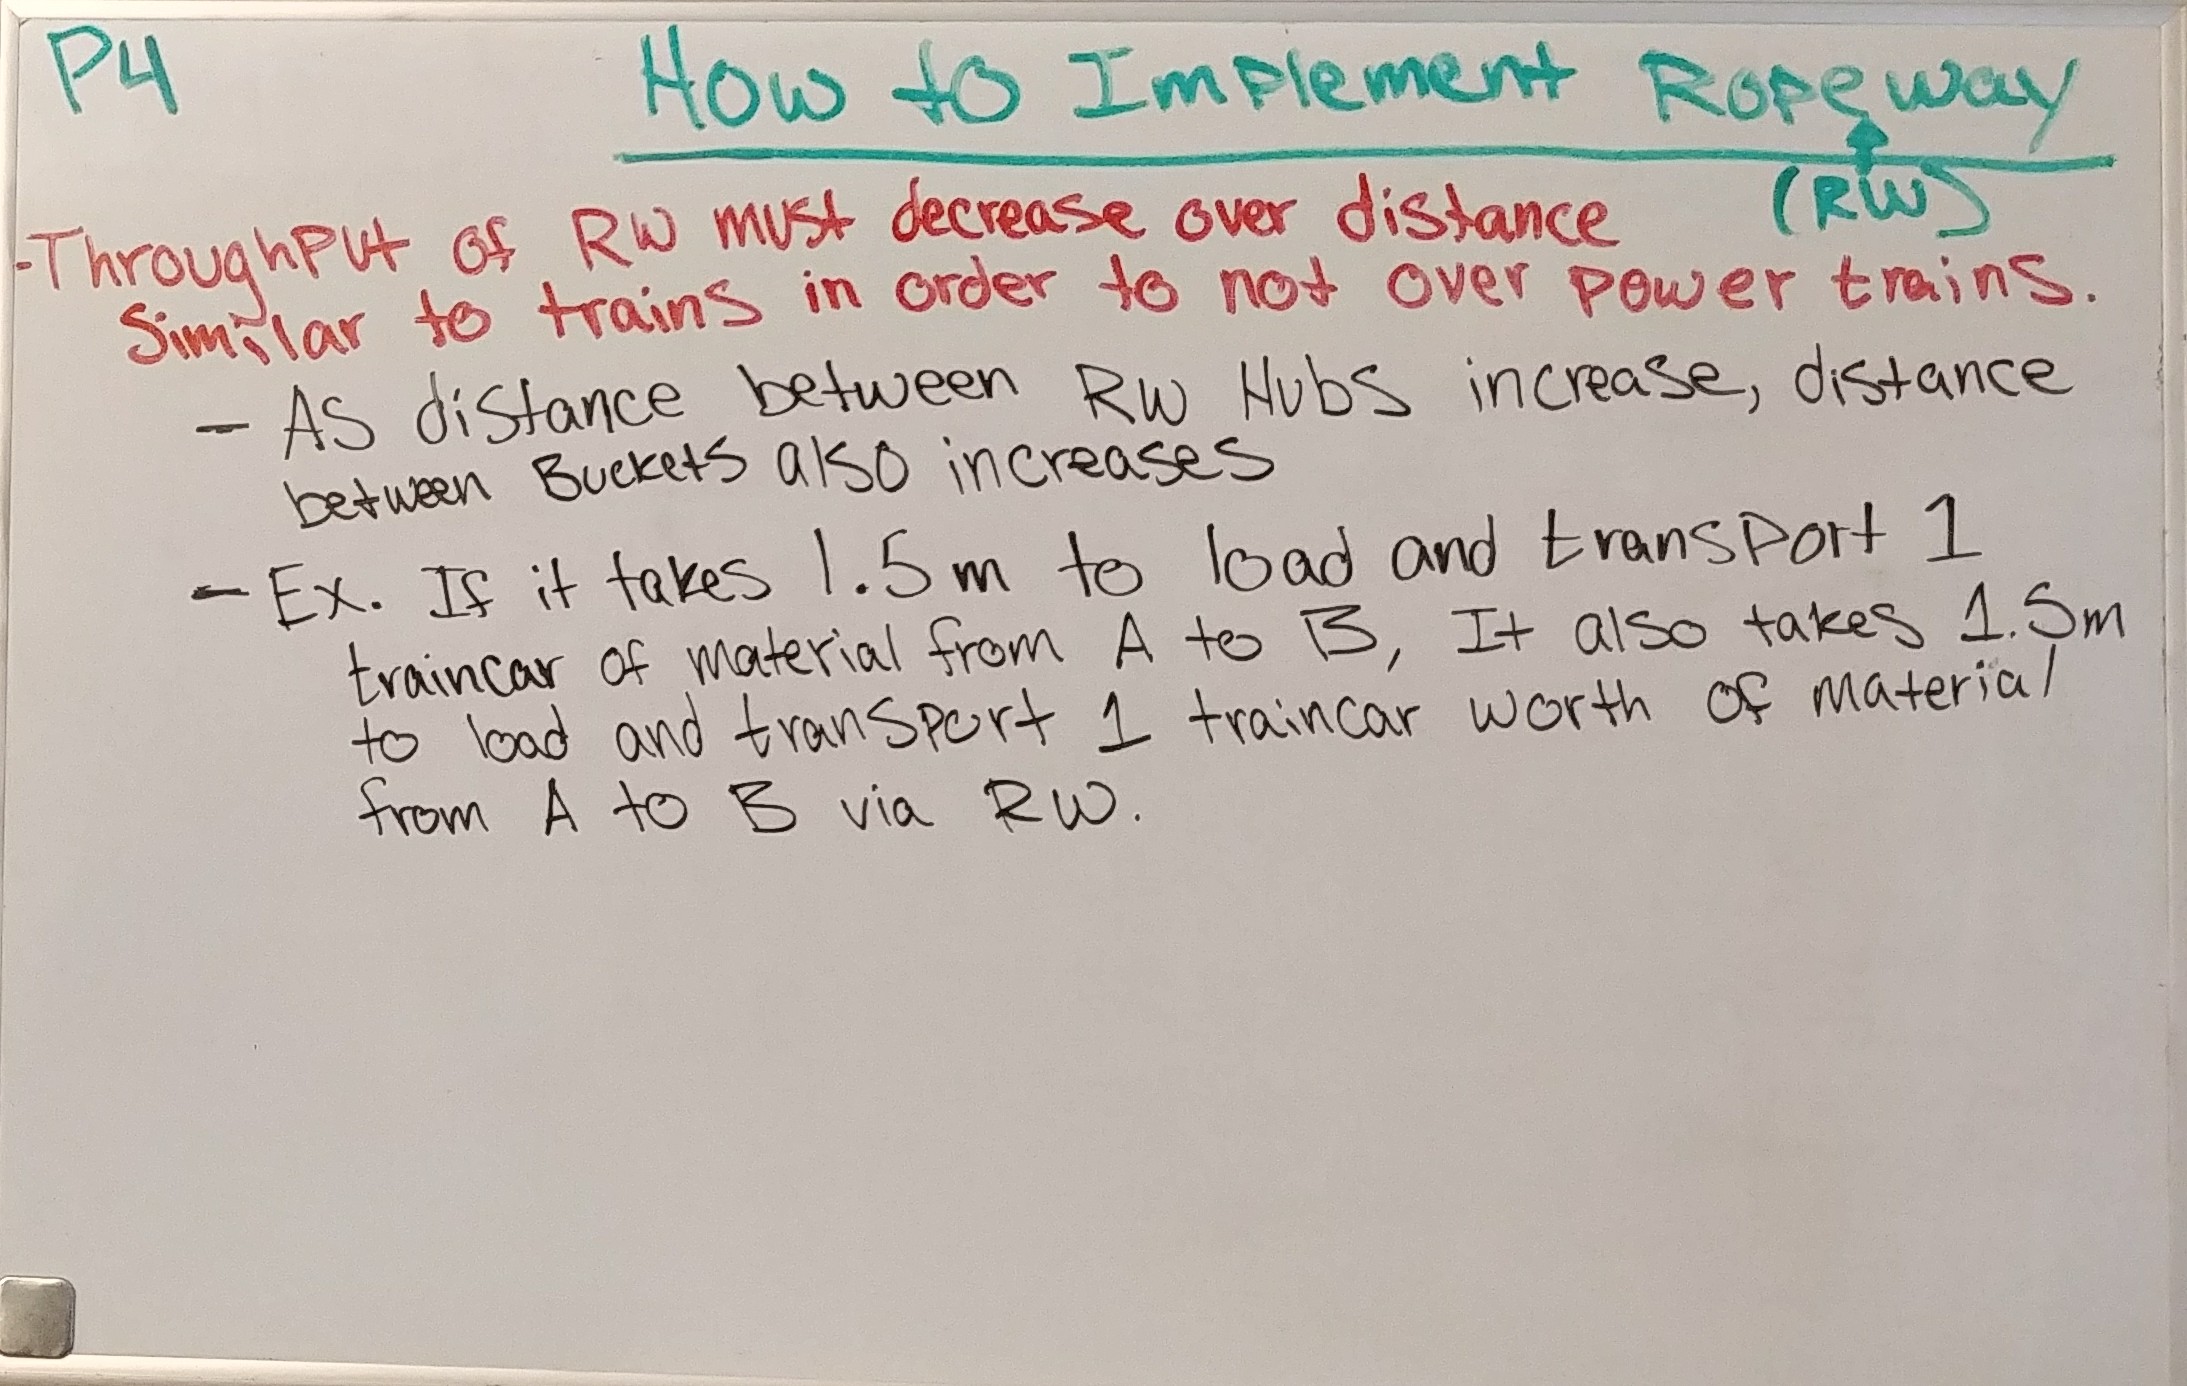 P4
How to Implement Ropeway
(RW)
-Throughput of RW must decrease over distance
Similar to trains in order to not over power trains.
- As distance between RW Hubs increase, distance
between Buckets also increases
- Ex. If it takes 1.5m to load and transport 1
traincar of material from A to B, It also takes 1.5m
to load and transport 1 traincar worth of material
from A to B via RW.